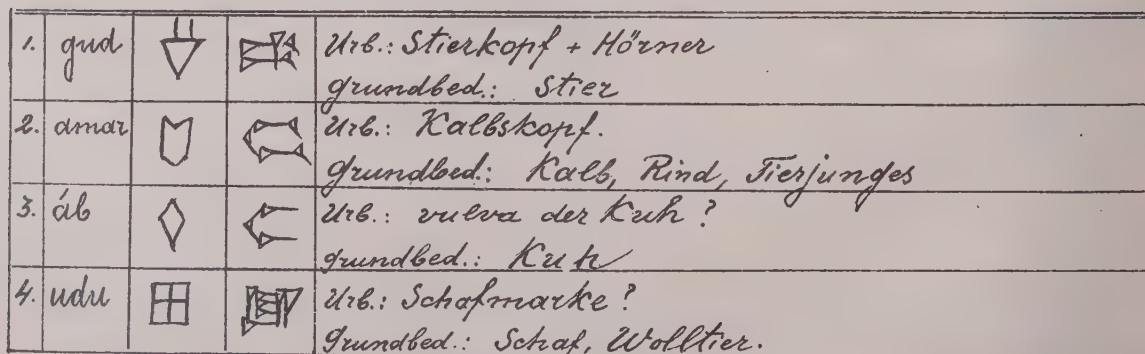 1. gud Urb.: Stierkopf + Hörner
Grundbed.: Stier
2. amar Urb.: Kalbskopf.
Grundbed.: Kalb, Rind, Tierjunges
3. áb Urb.: vulva der Kuh?
Grundbed.: Kuh
4. udu Urb.: Schafmarke?
Grundbed.: Schaf, Wolltier.